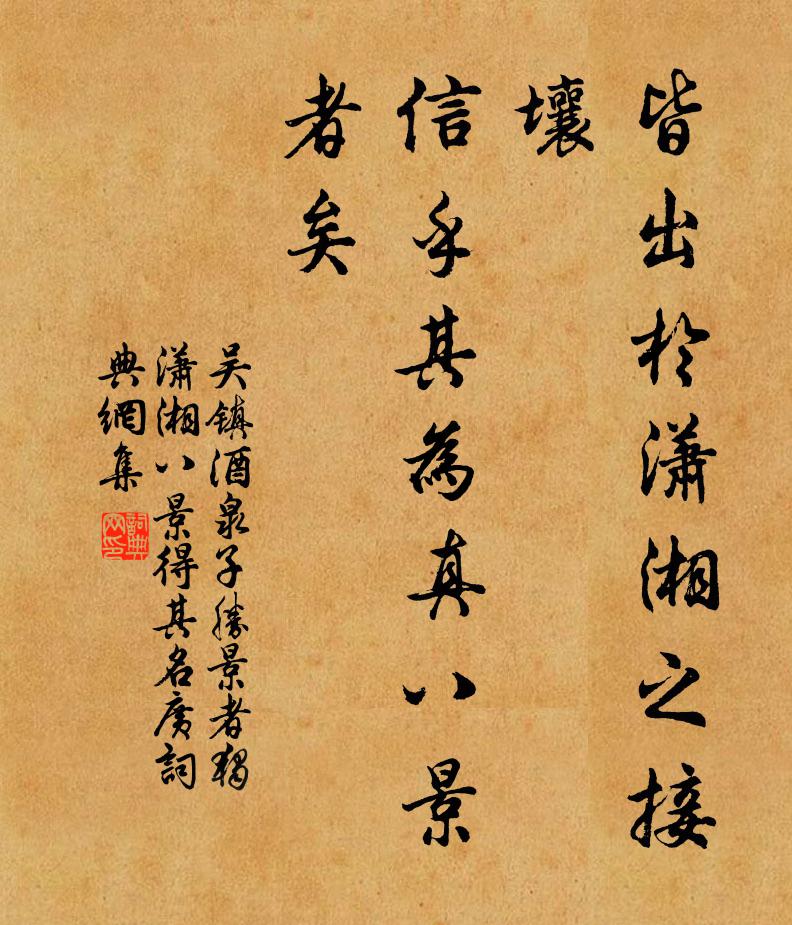 皆出於瀟湘之接
壤
信乎其為真八景
者矣
吴镇酒泉子勝景者獨
瀟湘八景得其名廣詞
典網集
詞典網印